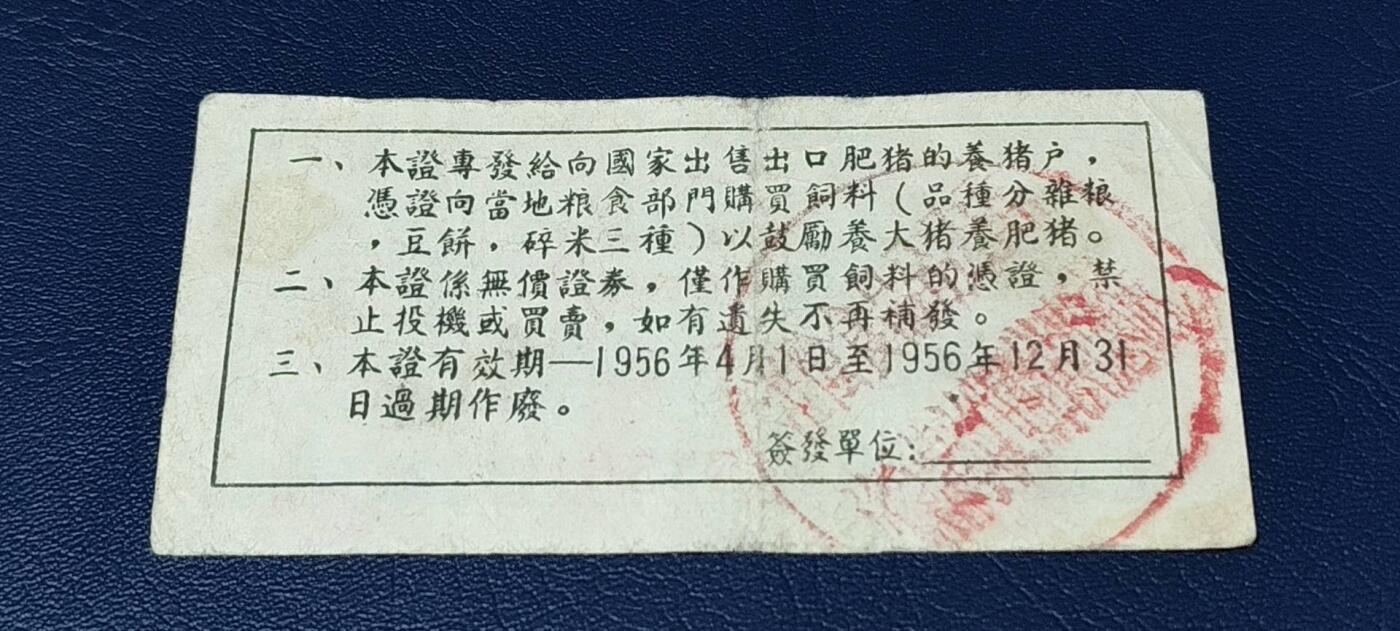 一、本證專發給向國家出售出口肥猪的養猪户，
憑證向當地粮食部門購買飼料(品種分雜粮
，豆餅，碎米三種)以鼓勵養大猪養肥猪。
二、本證係無價證券，僅作購買飼料的憑證，禁
止投機或買賣，如有遺失不再補發。
三、本證有效期—1956年4月1日至1956年12月31
日過期作廢。
簽發單位: